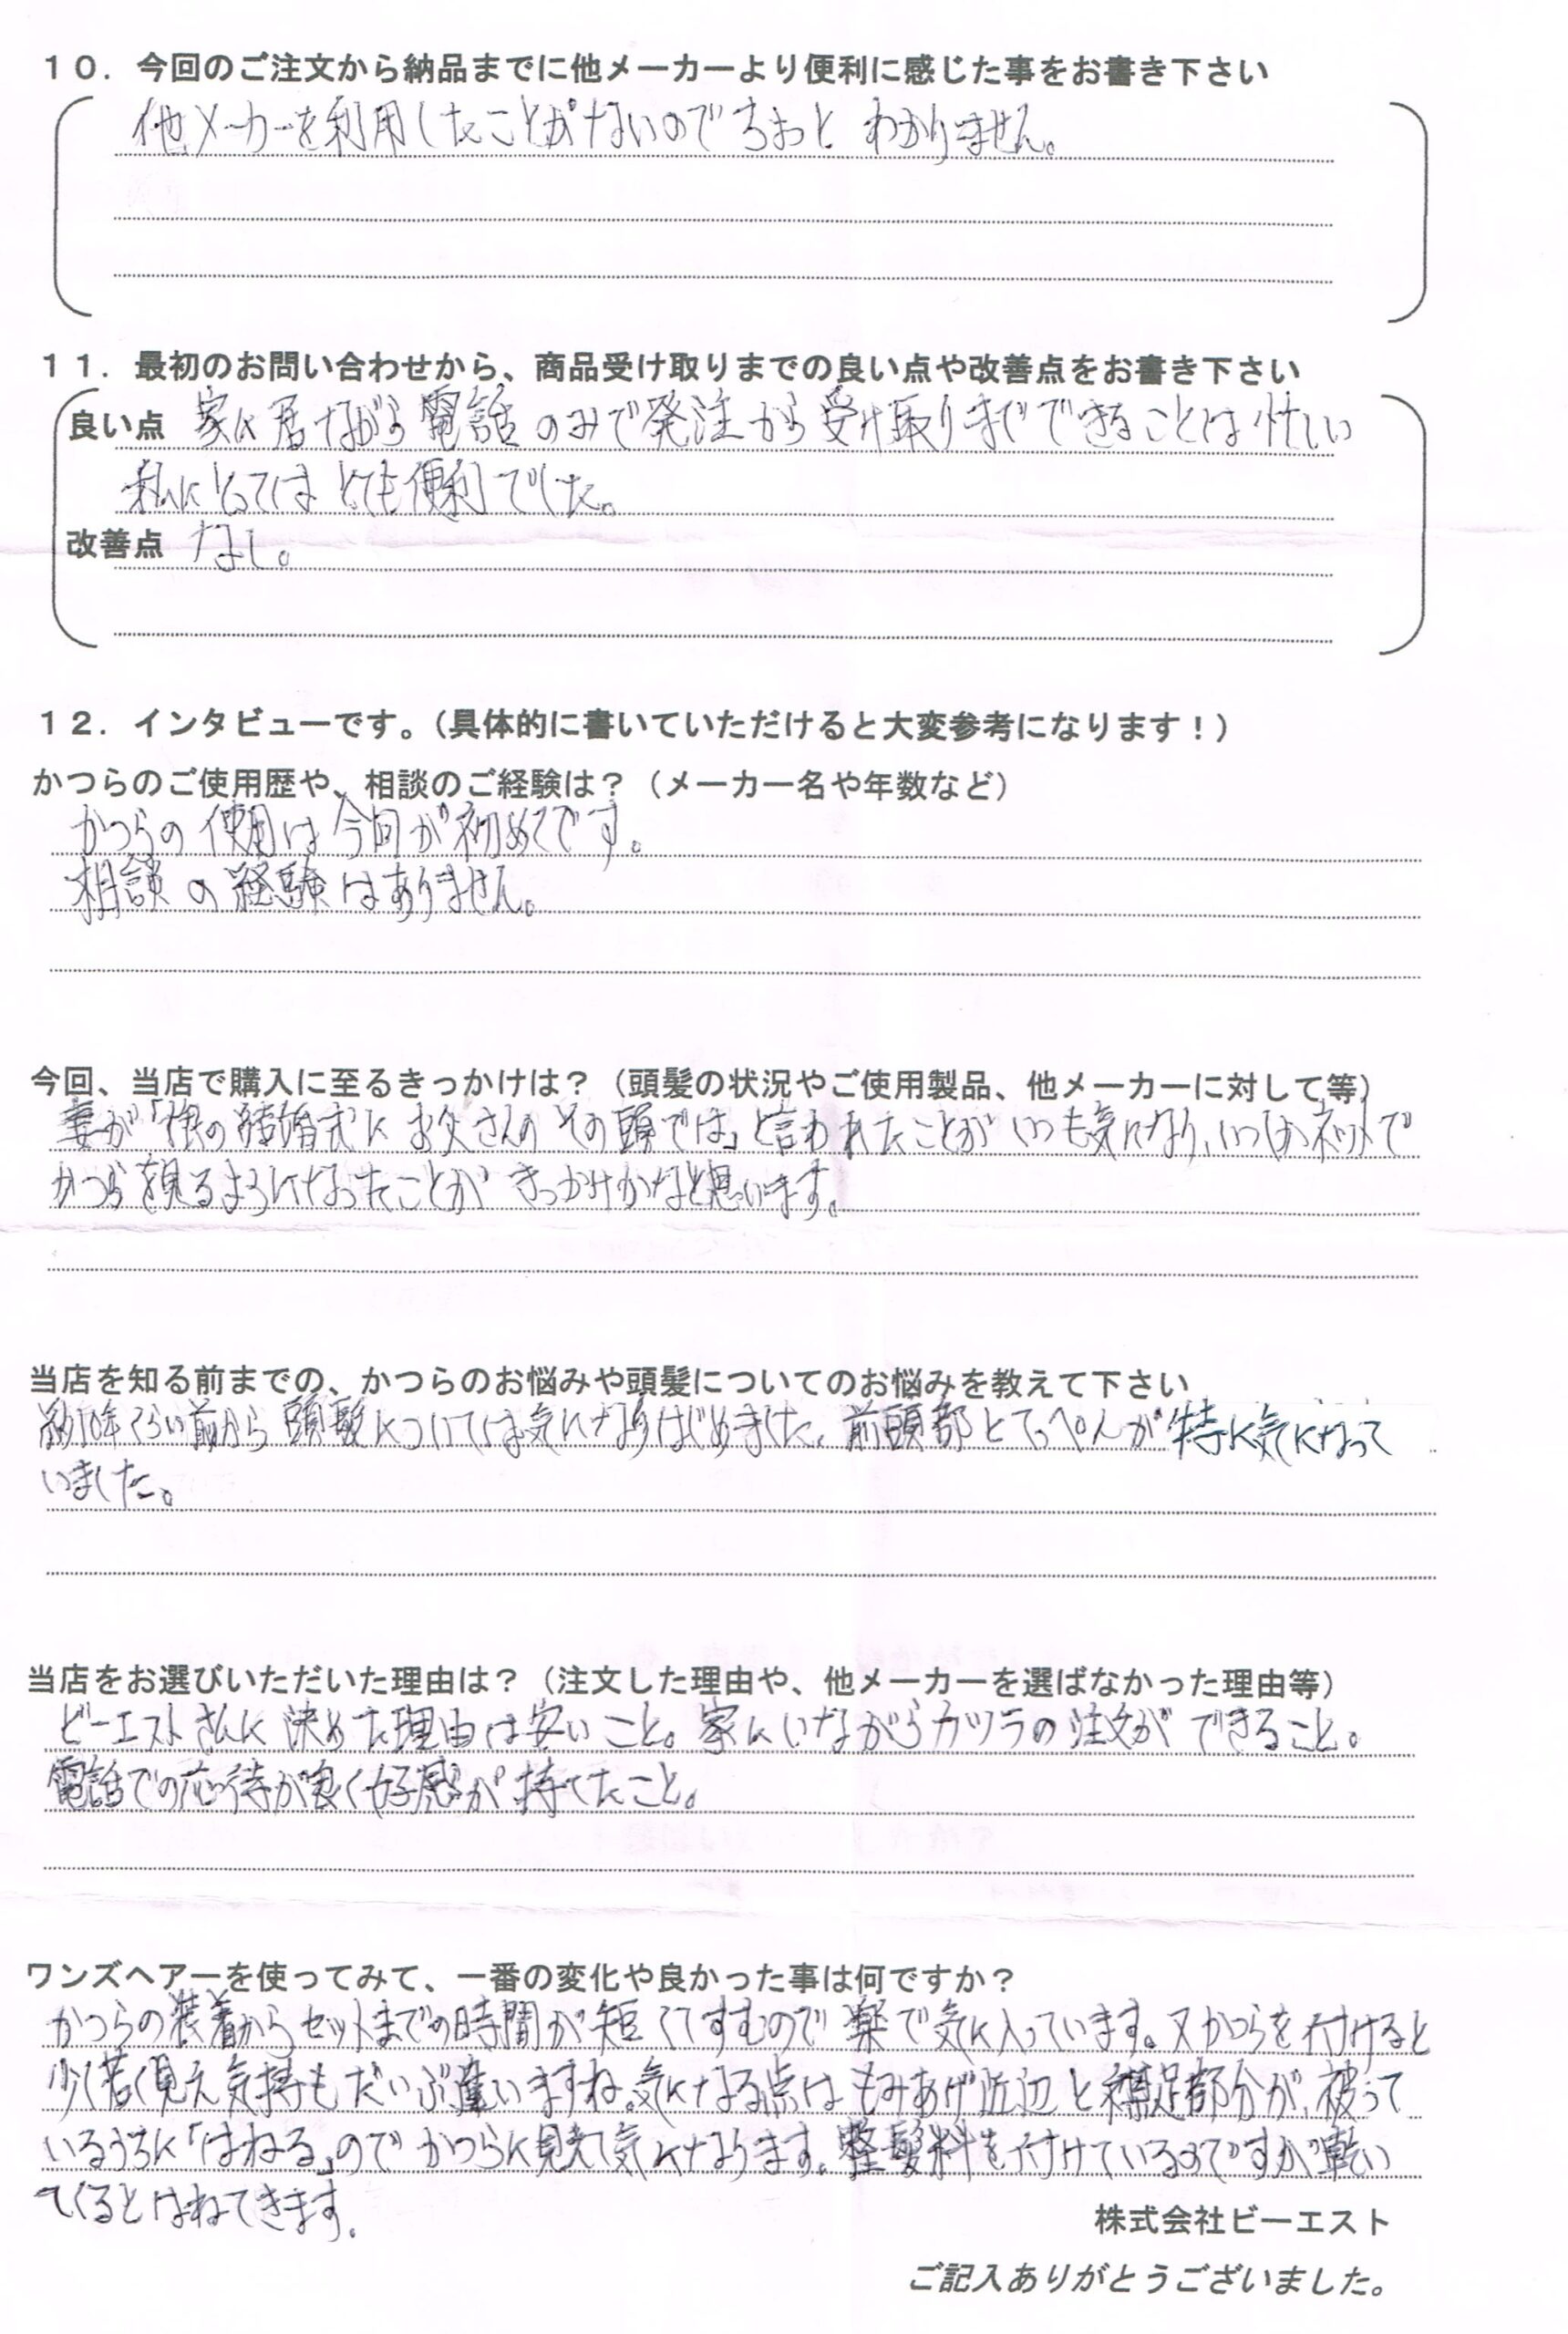 10．今回のご注文から納品までに他メーカーより便利に感じた事をお書き下さい
他メーカーを利用したことがないのでちょっと わかりません。
11．最初のお問い合わせから、商品受け取りまでの良い点や改善点をお書き下さい
良い点 家に居ながら電話のみで発注から受け取りまでできることは忙しい
私にとってはとても便利でした。
改善点 なし。
12．インタビューです。（具体的に書いていただけると大変参考になります！）
かつらのご使用歴や、相談のご経験は？（メーカー名や年数など）
かつらの使用は今回が初めてです。
相談の経験はありません。
今回、当店で購入に至るきっかけは？（頭髪の状況やご使用製品、他メーカーに対して等）
妻が「娘の結婚式にお父さんのその頭では」と言われたことがいつも気になり、いつしかネットで
かつらを見るようになったことがきっかけかなと思います。
当店を知る前までの、かつらのお悩みや頭髪についてのお悩みを教えて下さい
約10年くらい前から頭髪については気になりはじめました。前頭部とてっぺんが特に気になって
いました。
当店をお選びいただいた理由は？（注文した理由や、他メーカーを選ばなかった理由等）
ビーエストさんに決めた理由は安いこと。家にいながらカツラの注文ができること。
電話での応待が良く好感が持てたこと。
ワンズヘアーを使ってみて、一番の変化や良かった事は何ですか？
かつらの装着からセットまでの時間が短くてすむので楽で気に入っています。又かつらを付けると
少し若く見え気持もだいぶ違いますね。気になる点はもみあげ近辺と襟足部分が、被って
いるうちに「はねる」のでかつらに見えて気になります。整髪料を付けているのですが乾い
てくるとはねてきます。
株式会社ビーエスト
ご記入ありがとうございました。